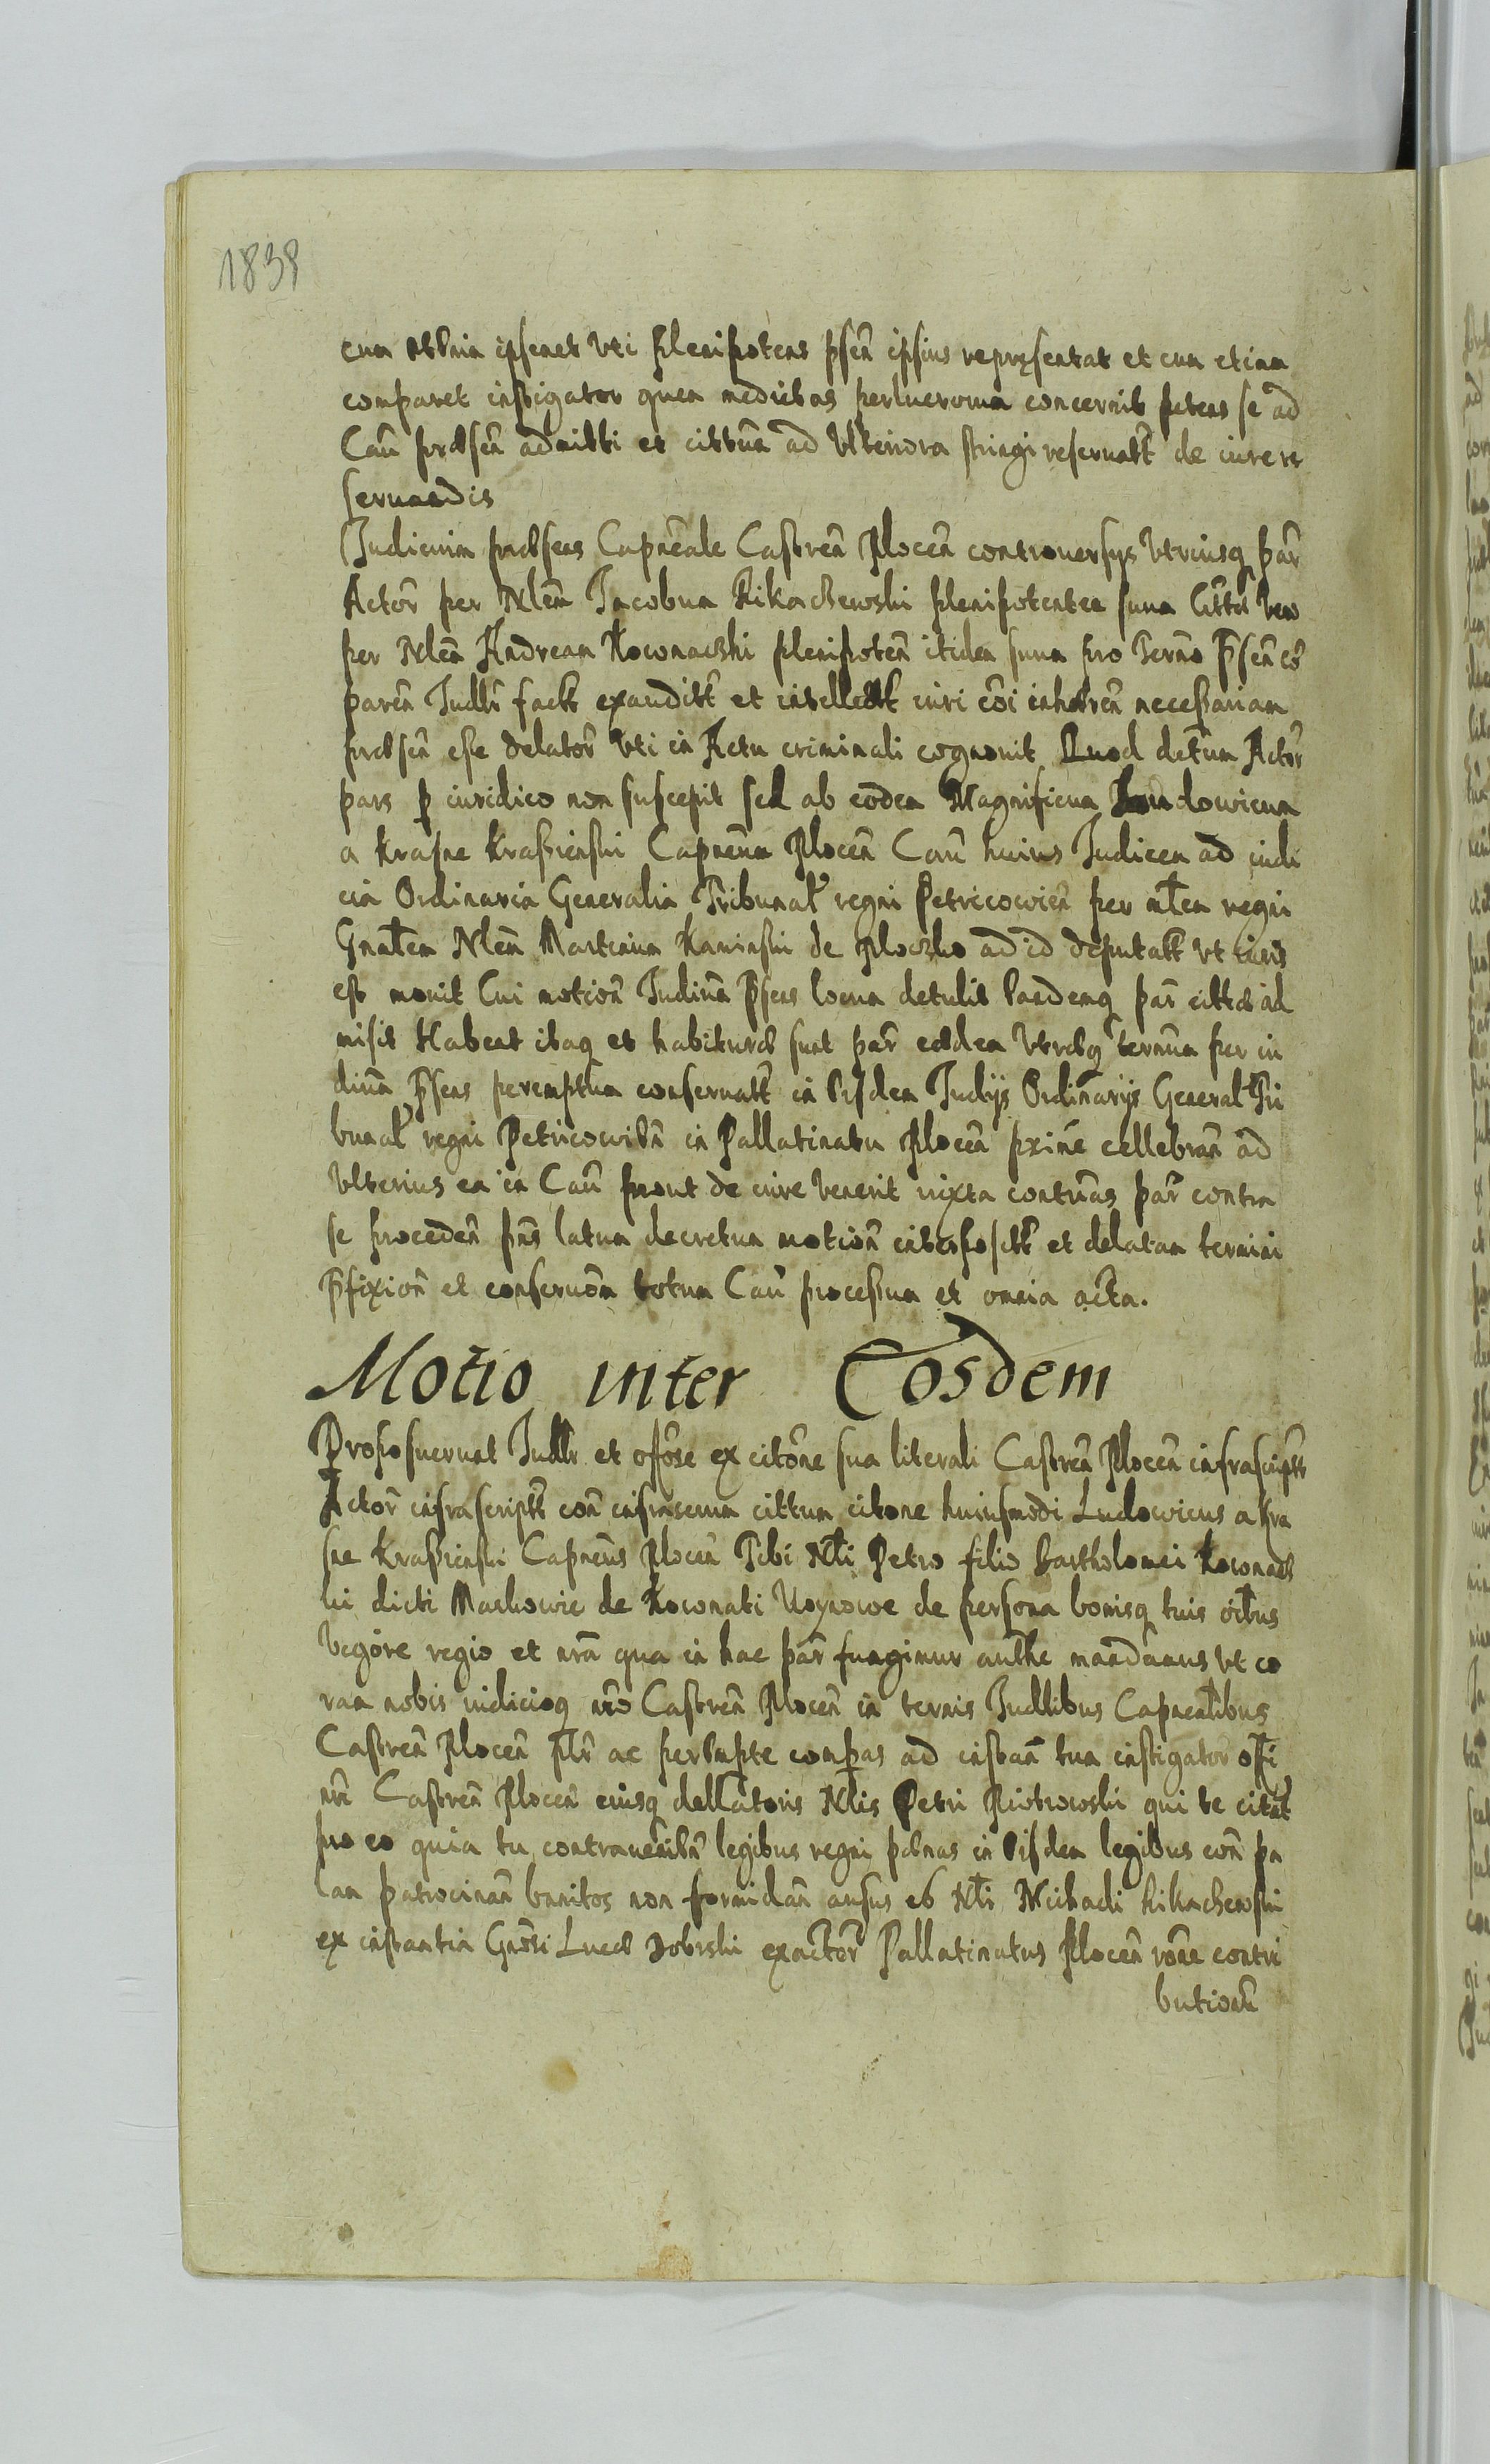 1838
cum etiam ipsemet uti plenipotens psen ipsius repręsentat et cum etiam
comparet instigator quem medietas perlucrorum concernit petens se ad
Cau praesen admitti et cittum ad Ulteriora stringi reservatt de iure re
servandis
Judicium praesens Capneale Castren Plocen controversys Utriusq par
Actor per Nlem Jacobum Kikachewski plenipotentem suum Citta vero
per Nlem Andream Kownaczki plenipoten itidem suum pro termo psen co
paren Judlr fact exauditt et intellectt iuri coi inhaeren necessariam
praesen esse delator Uti in Actu criminali cognovit Quod detum Actor
pars p iuridico non suscepit sed ab eodem Magnificum Ludowicum
a Krasne Krassinski Capneum Plocen Cau huius Judicem ad iudi
cia Ordinaria Generalia Tribunal regni Petricowien per mtem regni
Gnalem Nlem Martinum Kaminski de Ploczko ad id deputatt ut iuris
est movit Cui motion Judium psens locum detulit eandemq par citta ad
misit Habent itaq et habitura sunt par eaedem Utraeq termum per iu
dium psens peremptum conservatt in eisdem Judijs Ordinarijs General Tri
bunal regni Petricowien in Pallatinatu Plocen prime cellebran ad
Ulterius ea in Cau prout de iure venerit iuxta contuas par contra
se proceden pns latum decretum motion interpositt et delatam termini
pfixion et conservon totum Cau processum et omnia acta.
Motio inter Eosdem
Proposuerunt Judlr et offose ex citone sua literali Castren Plocen infrascriptt
Actor infrascriptt con infrascrum cittum citone huiusmodi Ludowicus a Kra
sne Krassinski Capneus Plocen Tibi Nli Petro filio Bartholomei Kownacz
ki dicti Maskowic de Kownati Woynowe de persona bonisq tuis oibus
Vegore regio et nra qua in hac par fungimur authe mandamus ut co
ram nobis iudicioq nro Castren Plocen in termis Judlibus Capnealibus
Castren Plocen plr ac perempte compas ad instan tum instigator offi
nri Castren Plocen eiusq dellatoris Nlis Petri Piotrowski qui te citat
pro eo quia tu contravenien legibus regni paenas in eisdem legibus con pa
lam patrocinan banitos non formidan ausus es Nli Michaeli Kikachewski
ex instantia Gnosi Lucae Dobrski exactor Pallatinatus Plocen rone contri
butionu